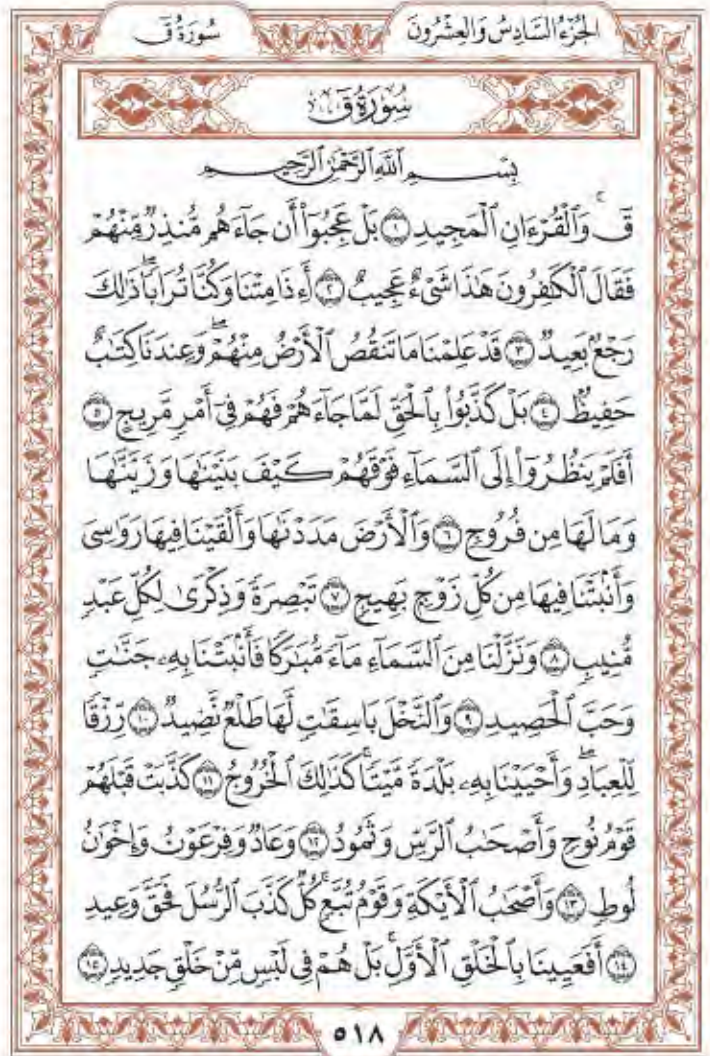 سُورَةُ قٓ
الجُزْءُ السَّادِسُ وَالعِشْرُونَ
سُورَةُ قٓ
بِسْمِ ٱللَّهِ ٱلرَّحْمَٰنِ ٱلرَّحِيمِ
قٓۚ وَٱلْقُرْءَانِ ٱلْمَجِيدِ ١ بَلْ عَجِبُوٓا۟ أَن جَآءَهُم مُّنذِرٌ مِّنْهُمْ
فَقَالَ ٱلْكَٰفِرُونَ هَٰذَا شَىْءٌ عَجِيبٌ ٢ أَءِذَا مِتْنَا وَكُنَّا تُرَابًاۖ ذَٰلِكَ
رَجْعٌۢ بَعِيدٌ ٣ قَدْ عَلِمْنَا مَا تَنقُصُ ٱلْأَرْضُ مِنْهُمْۖ وَعِندَنَا كِتَٰبٌ
حَفِيظٌۢ ٤ بَلْ كَذَّبُوا۟ بِٱلْحَقِّ لَمَّا جَآءَهُمْ فَهُمْ فِىٓ أَمْرٍ مَّرِيجٍ ٥
أَفَلَمْ يَنظُرُوٓا۟ إِلَى ٱلسَّمَآءِ فَوْقَهُمْ كَيْفَ بَنَيْنَٰهَا وَزَيَّنَّٰهَا
وَمَا لَهَا مِن فُرُوجٍ ٦ وَٱلْأَرْضَ مَدَدْنَٰهَا وَأَلْقَيْنَا فِيهَا رَوَٰسِىَ
وَأَنۢبَتْنَا فِيهَا مِن كُلِّ زَوْجٍۭ بَهِيجٍ ٧ تَبْصِرَةً وَذِكْرَىٰ لِكُلِّ عَبْدٍ
مُّنِيبٍ ٨ وَنَزَّلْنَا مِنَ ٱلسَّمَآءِ مَآءً مُّبَٰرَكًا فَأَنۢبَتْنَا بِهِۦ جَنَّٰتٍ
وَحَبَّ ٱلْحَصِيدِ ٩ وَٱلنَّخْلَ بَاسِقَٰتٍ لَّهَا طَلْعٌ نَّضِيدٌ ١٠ رِّزْقًا
لِّلْعِبَادِۖ وَأَحْيَيْنَا بِهِۦ بَلْدَةً مَّيْتًاۚ كَذَٰلِكَ ٱلْخُرُوجُ ١١ كَذَّبَتْ قَبْلَهُمْ
قَوْمُ نُوحٍ وَأَصْحَٰبُ ٱلرَّسِّ وَثَمُودُ ١٢ وَعَادٌ وَفِرْعَوْنُ وَإِخْوَٰنُ
لُوطٍ ١٣ وَأَصْحَٰبُ ٱلْأَيْكَةِ وَقَوْمُ تُبَّعٍۚ كُلٌّ كَذَّبَ ٱلرُّسُلَ فَحَقَّ وَعِيدِ
١٤ أَفَعَيِينَا بِٱلْخَلْقِ ٱلْأَوَّلِۚ بَلْ هُمْ فِى لَبْسٍ مِّنْ خَلْقٍ جَدِيدٍ ١٥
٥١٨